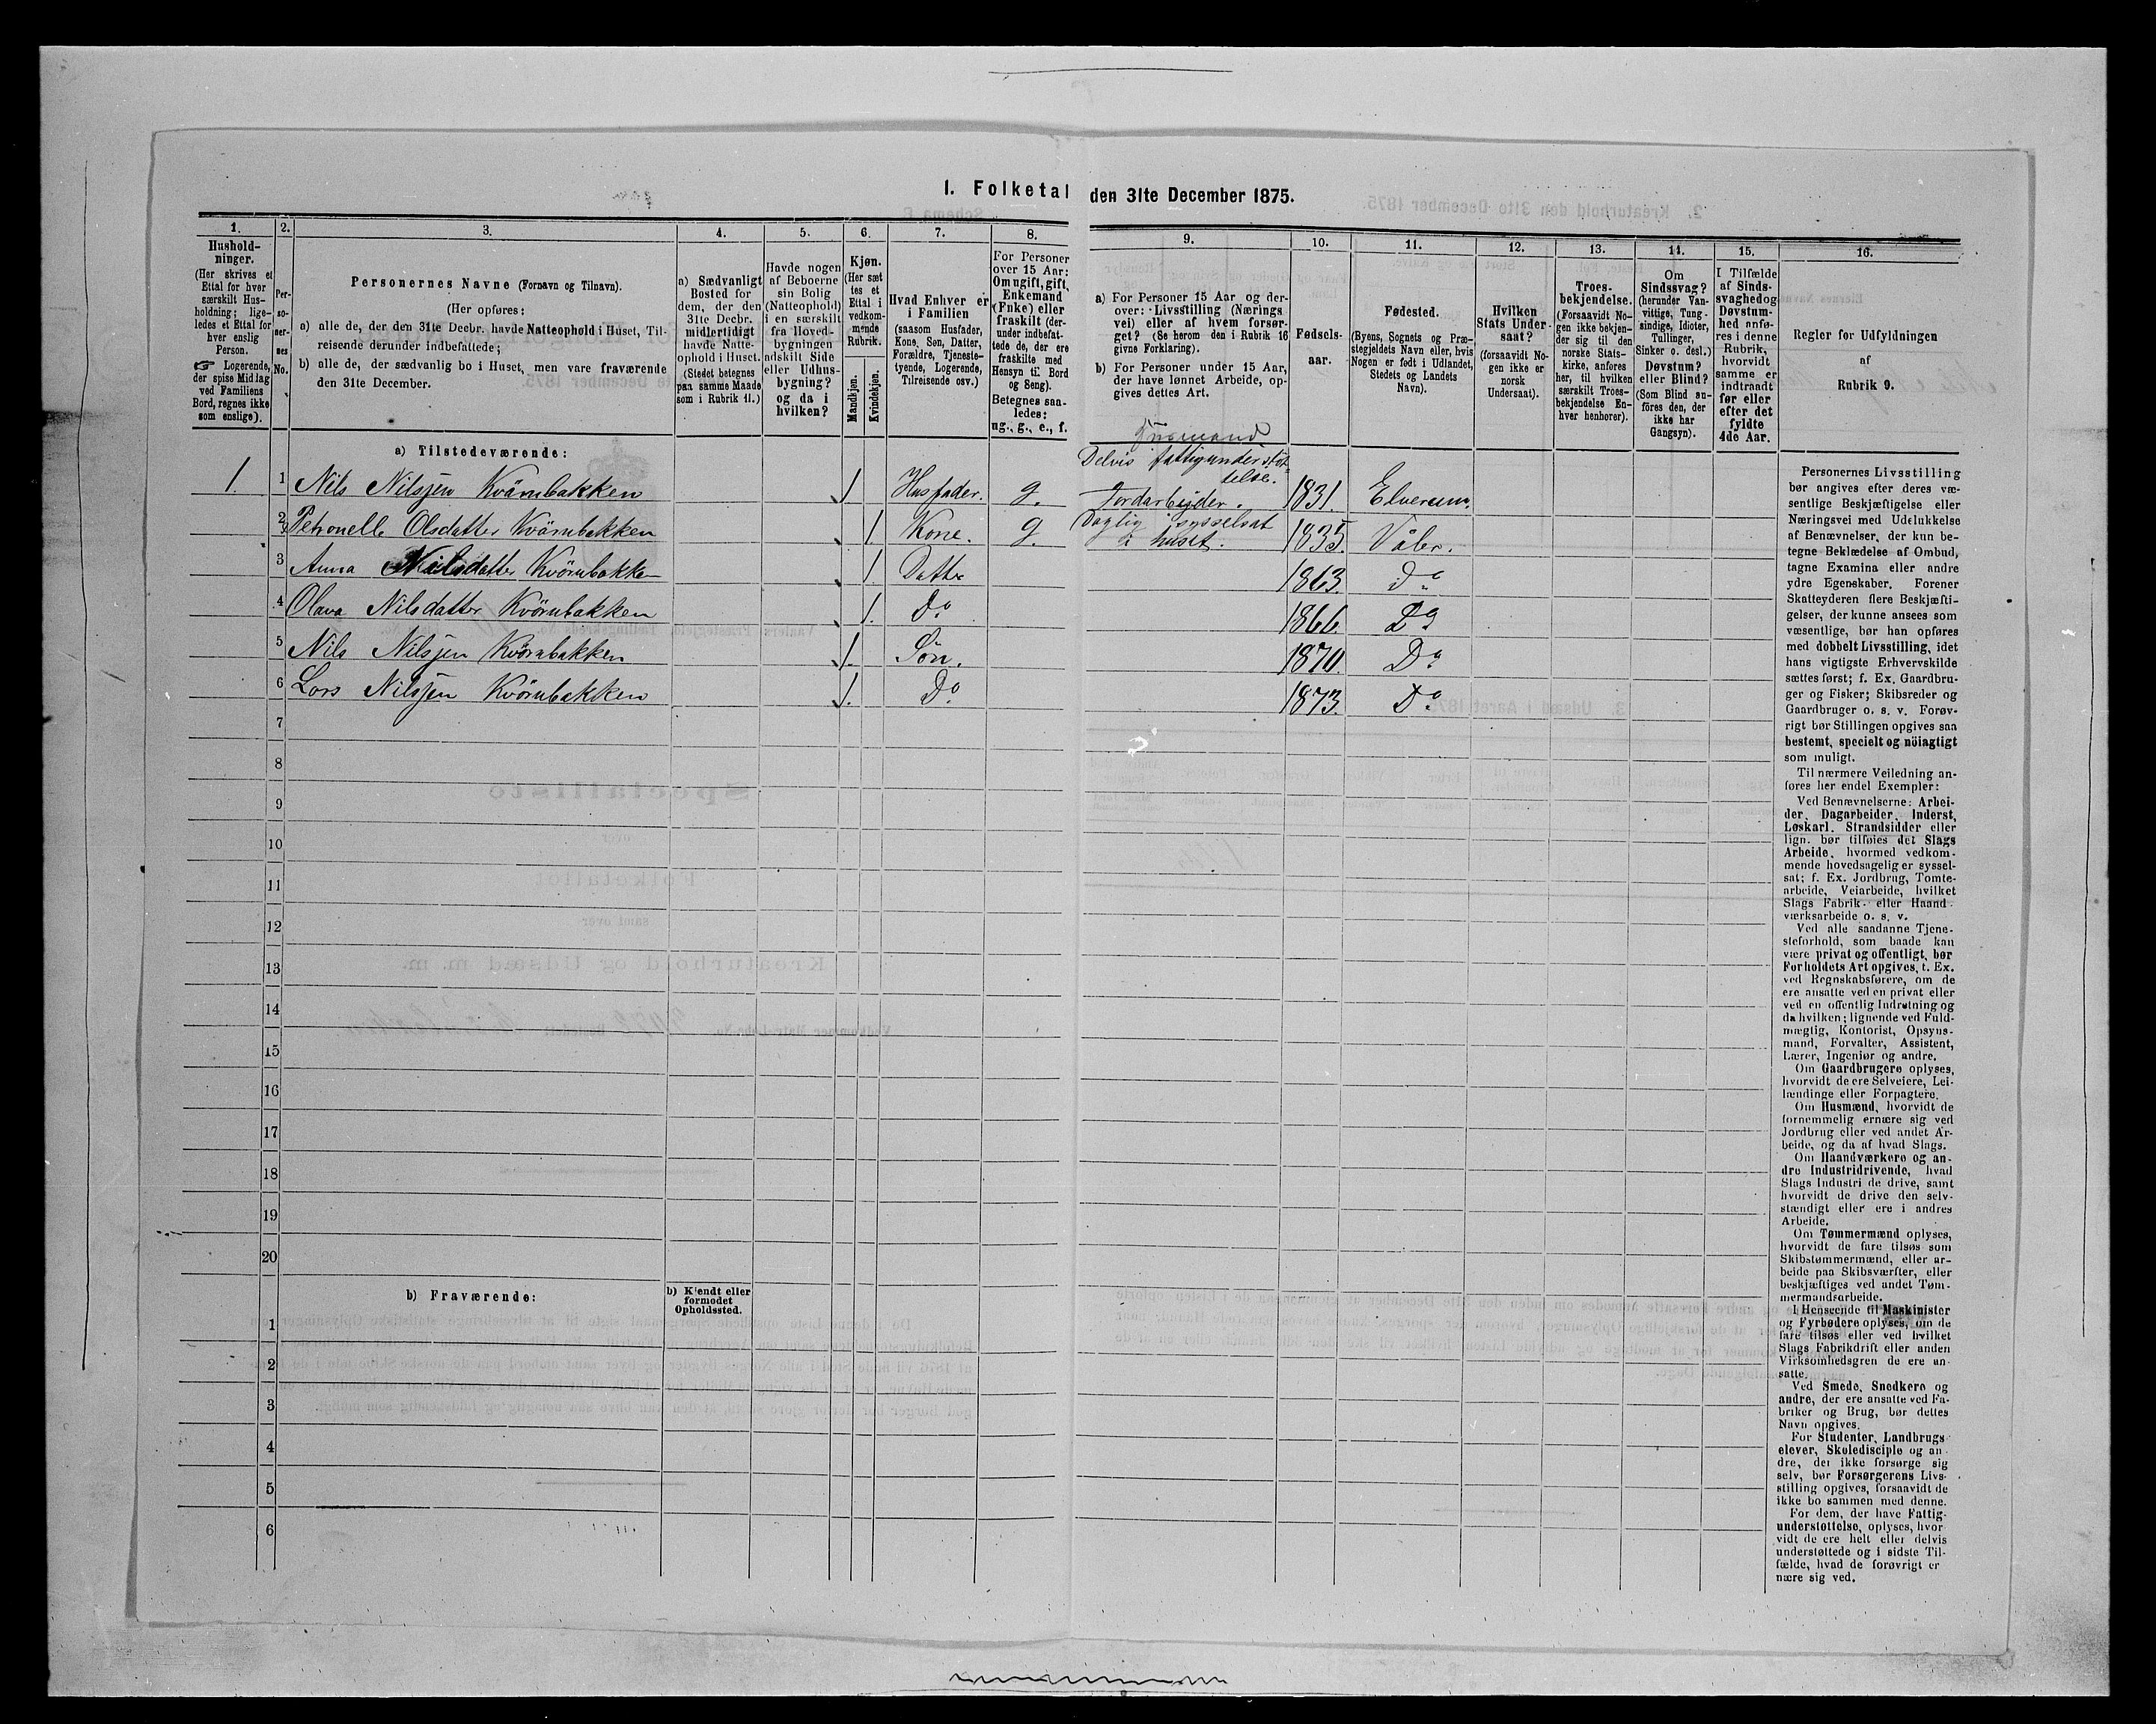 1. Folketal den 31te December 1875.
1.
Hushold-
ninger.
(Her skrives et
Ettal for hver
særskilt Hus-
holdning; lige-
ledes et Ettal for
hver enslig
Person.
☞ Logerende,
der spise Middag
ved Familiens
Bord, regnes ikke
som enslige).
2.
Per-
so-
ner-
nes
No.
3.
Personernes Navne (Fornavn og Tilnavn).
(Her opføres:
a) alle de, der den 31te Decbr. havde Natteophold i Huset, Til-
reisende derunder indbefattede;
b) alle de, der sædvanlig bo i Huset, men vare fraværende
den 31te December.
4.
a) Sædvanligt
Bosted for
dem, der den
31te Decbr.
midlertidigt
havde Natte-
ophold i Huset.
(Stedet betegnes
paa samme Maade
som i Rubrik 11.)
5.
Havde nogen
af Beboerne
sin Bolig
(Natteophold)
i en særskilt
fra Hoved-
bygningen
adskilt Side
eller Udhus-
bygning?
og da i
hvilken?
6.
Kjøn.
(Her sæt
tes et
Ettal i
vedkom-
mende
Rubrik.
Mandkjøn.
Kvindekjøn.
7.
Hvad Enhver er
i Familien
(saasom Husfader,
Kone, Søn, Datter,
Forældre, Tjeneste-
tyende, Logerende,
Tilreisende osv.)
8.
For Personer
over 15 Aar:
Om ugift, gift,
Enkemand
(Enke) eller
fraskilt (der-
under indbefat-
tede de, der ere
fraskilte med
Hensyn til Bord
og Seng).
Betegnes saa-
ledes:
ug., g., e., f.
9.
a) For Personer 15 Aar og der-
over: Livsstilling (Nærings
vei) eller af hvem forsør-
get? (Se herom den i Rubrik 16
givne Forklaring).
b) For Personer under 15 Aar,
der have lønnet Arbeide, op-
gives dettes Art.
10.
Fødsels-
aar.
11.
Fødested.
(Byens, Sognets og Præ-
stegjeldets Navn eller, hvis
Nogen er født i Udlandet,
Stedets og Landets
Navn).
12.
Hvilken
Stats Under-
saat?
(forsaavidt No-
gen ikke er
norsk
Undersaat).
13.
Troes-
bekjendelse.
(Forsaavidt No-
gen ikke bekjen-
der sig til den
norske Stats-
kirke, anføres
her, til hvilken
særskilt Troes-
bekjendelse En-
hver henhører).
14.
Om
Sindssvag?
(herunder Van-
vittige, Tung-
sindige, Idioter,
Tullinger,
Sinker o. desl.)
Døvstum?
eller Blind?
(Som Blind an-
føres den, der
ikke har
Gangsyn).
15.
I Tilfælde
af Sinds-
svaghed og
Døvstum-
hed anfø-
res i denne
Rubrik,
hvorvidt
samme er
indtraadt
før eller
efter det
fyldte
4de Aar.
16.
Regler for Udfyldningen
af
Rubrik 9.
a) Tilstedeværende:
Delvis fattigunderstøt-
telse.
1. 1 Nils Nilsjen Kvörnbakken 1 Husfader. g. Jordarbejder. 1831. Elverum.
2 Petronelle Olsdatter Kvörnbakken 1 Kone. g. Daglig sysselsat i huset. 1835. Våler.
3 Anna Nilsdatter Kvörnbakken 1 Datter 1863. Do
4 Olava Nilsdatter Kvörnbakken 1. Do 1866. Do
5 Nils Nilsjen Kvörnbakken 1. Sön. 1870. Do
6 Lars Nilsjen Kvörnbakken 1. Do. 1873. Do
7
8
9
10
11
12
13
14
15
16
17
18
19
20
b) Fraværende:
b) Kjendt eller
formodet
Opholdssted.
1
2
3
4
5
6
Personernes Livsstilling
bør angives efter deres væ-
sentlige Beskjæftigelse eller
Næringsvei med Udelukkelse
af Benævnelser, der kun be-
tegne Beklædelse af Ombud,
tagne Examina eller andre
ydre Egenskaber. Forener
Skatteyderen flere Beskjæfti-
gelser, der kunne ansees som
væsentlige, bør han opføres
med dobbelt Livsstilling, idet
hans vigtigste Erhvervskilde
sættes først; f. Ex. Gaardbru-
ger og Fisker; Skibsreder og
Gaardbruger o. s. v. Forøv-
rigt bør Stillingen opgives saa
bestemt, specielt og nöiagtigt
som muligt.
Til nærmere Veiledning an-
føres her endel Exempler:
Ved Benævnelserne: Arbei-
der, Dagarbeider, Inderst,
Løskarl, Strandsidder eller
lign. bør tilføies det Slags
Arbeide, hvormed vedkom-
mende hovedsagelig er syssel-
sat; f. Ex. Jordbrug, Tomte-
arbeide, Veiarbeide, hvilket
Slags Fabrik- eller Haand-
værksarbeide o. s. v.
Ved alle saadanne Tjene-
steforhold, som baade kan
være privat og offentligt, bør
Forholdets Art opgives, t. Ex.
ved Regnskabsførere, om de
ere ansatte ved en privat eller
ved en offentlig Indretning og
da hvilken; lignende ved Fuld-
mægtig, Kontorist, Opsyns-
mand, Forvalter, Assistent,
Lærer, Ingeniør og andre.
Om Gaardbrugere oplyses,
hvorvidt de ere Selveiere, Lei-
lændinge eller Forpagtere.
Om Husmænd, hvorvidt de
fornemmelig ernære sig ved
Jordbrug eller ved andet Ar-
beide, og da af hvad Slags.
Om Haandværkere og an-
dre Industridrivende, hvad
Slags Industri de drive, samt
hvorvidt de drive den selv-
stændigt eller ere i andres
Arbeide.
Om Tømmermænd oplyses,
hvorvidt de fare tilsøs som
Skibstømmermænd, eller ar-
beide paa Skibsværfter, eller
beskjæftiges ved andet Tøm-
mermandsarbeide.
I Henseende til Maskinister
og Fyrbødere oplyses, om de
fare tilsøs eller ved hvilket
Slags Fabrikdrift eller anden
Virksomhedsgren de ere an-
satte.
Ved Smede, Snedkere og
andre, der ere ansatte ved Fa-
briker og Brug, bør dettes
Navn opgives.
For Studenter, Landbrugs
elever, Skoledisciple og an-
dre, der ikke forsørge sig
selv, bør Forsørgerens Livs-
stilling opgives, forsaavidt de
ikke bo sammen med denne.
For dem, der have Fattig-
understøttelse, oplyses, hvor
vidt de ere helt eller delvis
understøttede og i sidste Til-
fælde, hvad de forøvrigt er
nære sig ved.